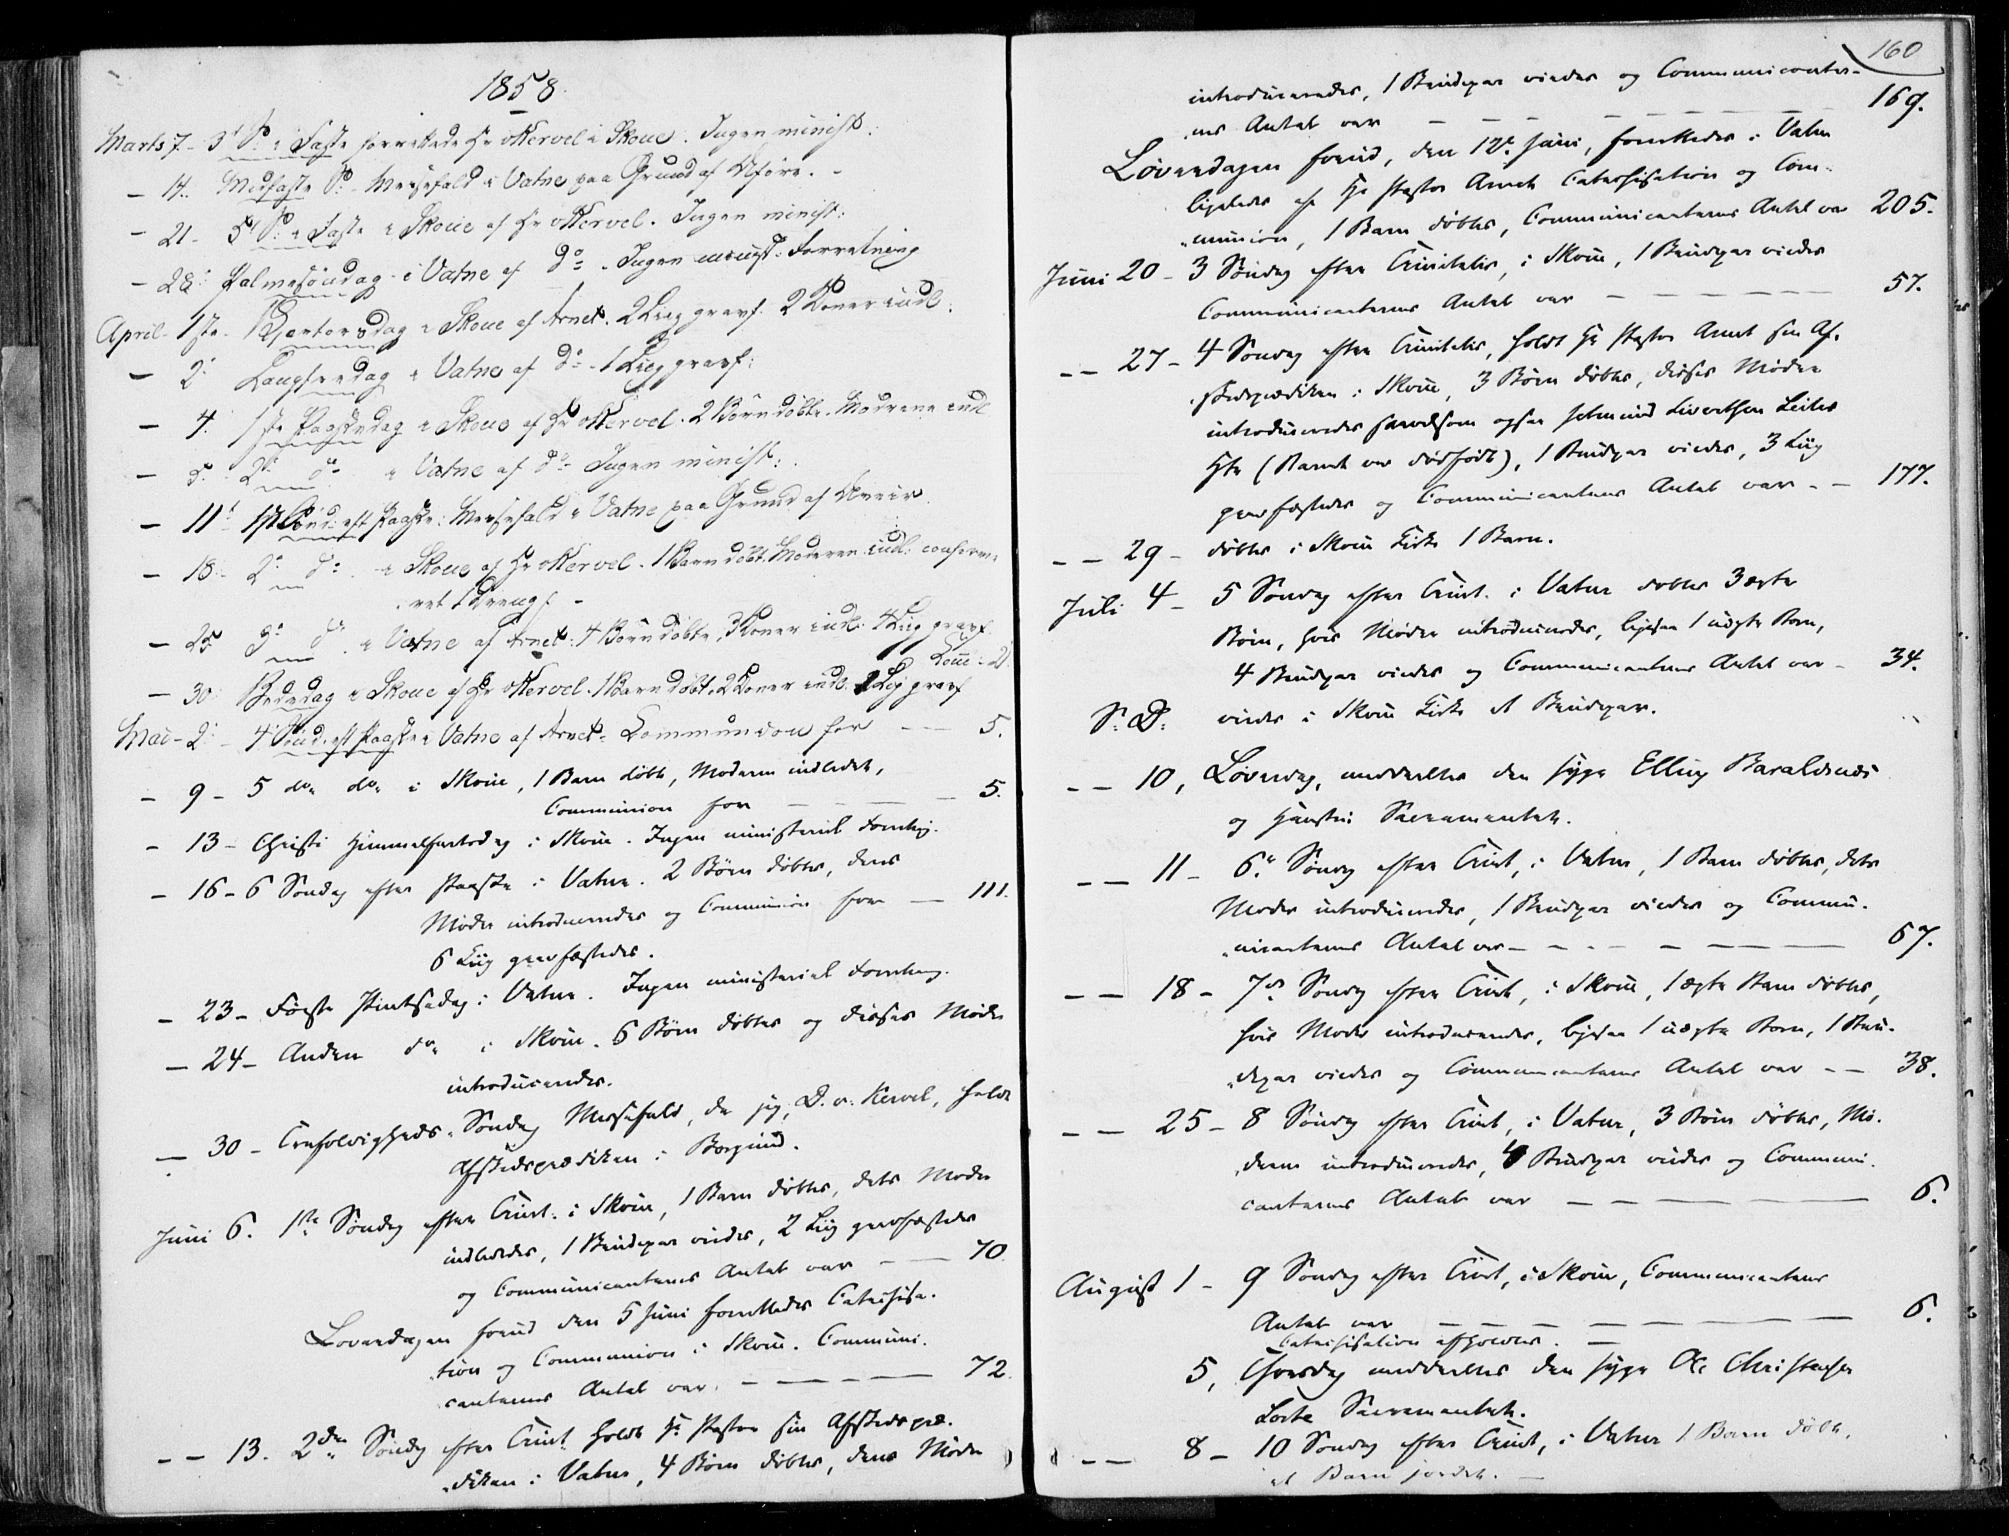 1858.
Marts 7 - 3die S: i Faste forrettede Hr v Kervel i Skoue. Ingen minist:
— 14. Midfaste S: - Messefald i Vatne paa Grund af Uføre. -
— 21 - 5te S: i Faste i Skoue af Hr v Kervel. Ingen minist:
— 28: Palmesöndag i Vatne af do. Ingen minist: Forretning
April - 1ste - Skjertorsdag i Skoue af Arnet. 2 Liig gravf. 2 Koner indl:
— 2: Langfredag i Vatne af do - 1 Liig gravf:
— 4: 1ste Paaskedag i Skoue af Hr v Kervel. 2 Börn döbte. Mödrene indl
— 5: 2: do i Vatne af do - Ingen minist:
— 11te 1ste Sönd: eft Paaske: Messefald i Vatne paa Grund af Uveir.
— 18: 2: do - i Skoue af Hr v Kervel. 1 Barn döbt. Moderen indl: confirme-
ret 1 Dreng. -
— 25 3: do i Vatne af Arnet: 4 Börn döbte, 3 Koner indl: 4 Liig gravf.
— 30: Bededag i Skoue af Hr v Kervel. 1 Barn döbt. 2 Koner indl. 2 Liig gravf
Mai - 2: - 4 Sönd: eft Paaske i Vatne af Arnet - Communion for — — 5.
— 9 - 5 do do i Skoue, 1 Barn döbt, Moderen indledet,
Communion for — — — — 5.
— 13 - Christi Himmelfartsdag i Skoue. Ingen ministeriel Forretng.
— 16 - 6 Søndag efter Paaske i Vatne. 2 Børn døbtes, deres
Mødre introduceredes og Communion for — 111.
6 Liig gravfæstedes.
— 23 - Første Pintsedag i Vatne. Ingen ministeriel Forretning.
— 24 - Anden do i Skoue. 6 Børn døbtes og disses Mødre
introduceredes.
— 30 - Trefoldigheds-Søndag Messefald, da jeg, D. v. Kervel, holdt
Afskedsprædiken i Borgund.
Juni 6. 1ste Søndag efter Trinit. i Skoue, 1 Barn døbtes, dets Moder
indlededes, 1 Brudepar viedes, 2 Liig gravfæstedes
og Communicanternes Antal var — — 70.
Løverdagen forud den 5 Juni forrettedes Catechisa-
tion og Communion i Skoue. Communi-
canternes Antal var. — — — — — 72.
— — 13. 2den Søndag efter Trinit. holdt Hr Pastor sin Afskedspræ-
diken i Vatne, 4 Børn døbtes, deres Mødre
160
introduceredes, 1 Brudepar viedes og Communicanter-
nes Antal var — — — — — — — 169.
Løverdagen forud, den 12te Juni, forrettedes i Vatne
ligeledes af Hr Pastor Arnet Catechisation og Com-
munion, 1 Barn døbtes, Communicanternes Antal var 205.
Juni 20 - 3 Søndag efter Trinitatis, i Skoue, 1 Brudepar viedes
Communicanternes Antal var — — — — — 57.
— — 27 - 4 Søndag efter Trinitatis, holdt Hr Pastor Arnet sin Af-
skedsprædiken i Skoue, 3 Børn døbtes, disses Mødre
introduceredes saavelsom ogsaa Sivertsen
(Barnet var dødfødt), 1 Brudepar viedes, 3 Liig
gravfæstedes og Communicanternes Antal var - — 177.
— — 29 - døbtes i Skoue Kirke 1 Barn.
Juli 4 - 5 Søndag efter Trinit. i Vatne døbtes 3 ægte
Børn, hvis Mødre introduceredes, ligesaa 1 uægte Barn,
4 Brudepar viedes og Communicanternes Antal var - 34.
S: D: viedes i Skoue Kirke et Brudepar.
— — 10, Løverdag, meddeeltes den syge Elling Baraldsnæs
og Hustru Sacramentet.
— — 11 - 6te Søndag efter Trinit, i Vatne, 1 Barn døbtes, dets
Moder introduceredes, 1 Brudepar viedes og Commu-
nicanternes Antal var — — — — — — — 67.
— — 18 - 7de Søndag efter Trinit, i Skoue, 1 ægte Barn døbtes,
hvis Moder introduceredes, ligesaa 1 uægte Barn, 1 Bru-
depar viedes og Communicanternes Antal var — — 38.
— — 25 - 8 Søndag efter Trinit, i Vatne, 3 Børn døbtes, Mø-
drene introduceredes, 4 Brudepar viedes og Communi-
canternes Antal var — — — — — — 6.
August 1 - 9 Søndag efter Trinit, i Skoue, Communicanternes
Antal var — — — — — — — — 6.
Catechisation afholdtes. —
5, Thorsdag meddeeltes den syge Ole Christensen
Sacramentet.
— — 8 - 10 Søndag efter Trinit, i Vatne 1 Barn døbt,
et Barn jordet. —